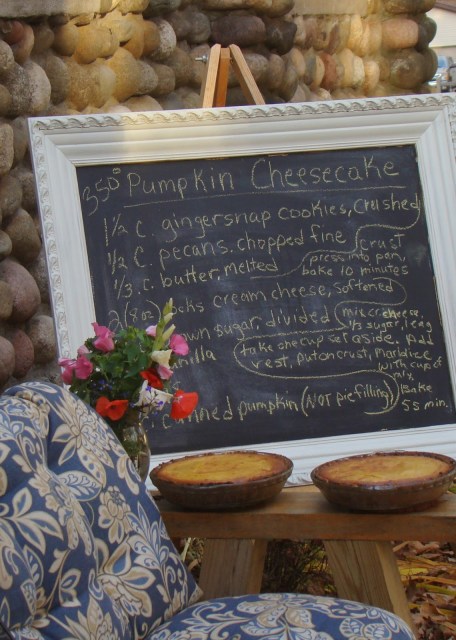 350° Pumpkin Cheesecake
1½ C. gingersnap cookies, crushed
½ C. pecans, chopped fine
⅓ C. butter, melted
crust
press into pan,
bake 10 minutes
2 (8oz) cks cream cheese, softened
own sugar, divided
nilla
mix cheese,
⅓ sugar, 1 egg
take one cup set aside. Add
rest, put on crust, marblize
with cup of
mix,
canned pumpkin (NOT pie filling)
Bake
55 min.